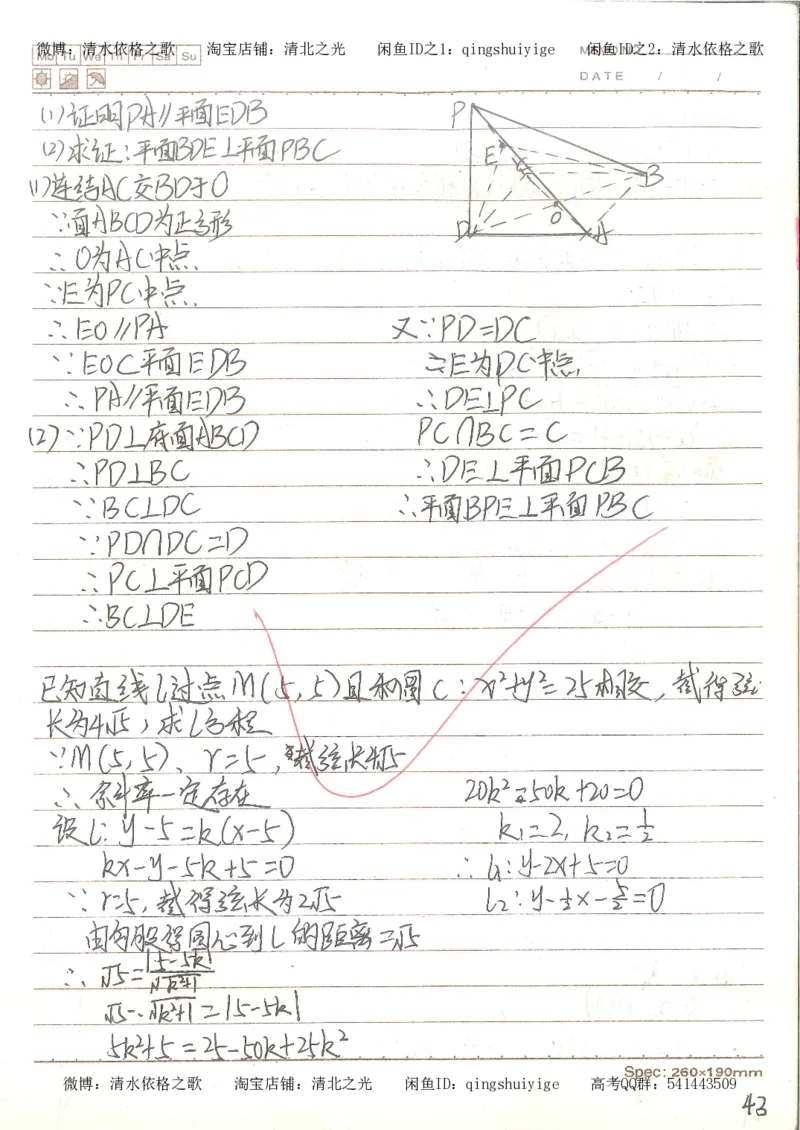 微博：清水依格之歌 淘宝店铺：清北之光 闲鱼ID之1：qingshuiyige 闲鱼ID之2：清水依格之歌
Mo Tu We Th Fr Sa Su
DATE / /
(1)证明PA∥平面EDB
(2)求证：平面BDE⊥平面PBC
P
E
C
B
O
D
A
(1)连结AC交BD于O
∵面ABCD为正方形
∴O为AC中点.
∵E为PC中点.
∴EO∥PA
∵EO⊂平面EDB
∴PA∥平面EDB
(2)∵PD⊥底面ABCD
∴PD⊥BC
∵BC⊥DC
∵PD∩DC=D
∴PC⊥平面PCD
∴BC⊥DE
又∵PD=DC
∵E为PC中点.
∴DE⊥PC
PC∩BC=C
∴DE⊥平面PCB
∴平面BPE⊥平面PBC
已知直线l过点M(5,5)且和圆C：x²+y²=25相交，截得弦
长为4√5，求l方程
∵M(5,5)、r=5，截弦长4√5
∴斜率一定存在
设l：y-5=k(x-5)
kx-y-5k+5=0
∵r=5，截得弦长为2√5
由勾股得圆心到l的距离=√5
∴√5=|5-5k|/√k²+1
√5·√k²+1=|5-5k|
5k²+5=25-50k+25k²
20k²-50k+20=0
k₁=2，k₂=1/2
∴l₁：y-2x+5=0
l₂：y-1/2x-5/2=0
Spec: 260×190mm
微博：清水依格之歌 淘宝店铺：清北之光 闲鱼ID：qingshuiyige 高考QQ群：541443509
43